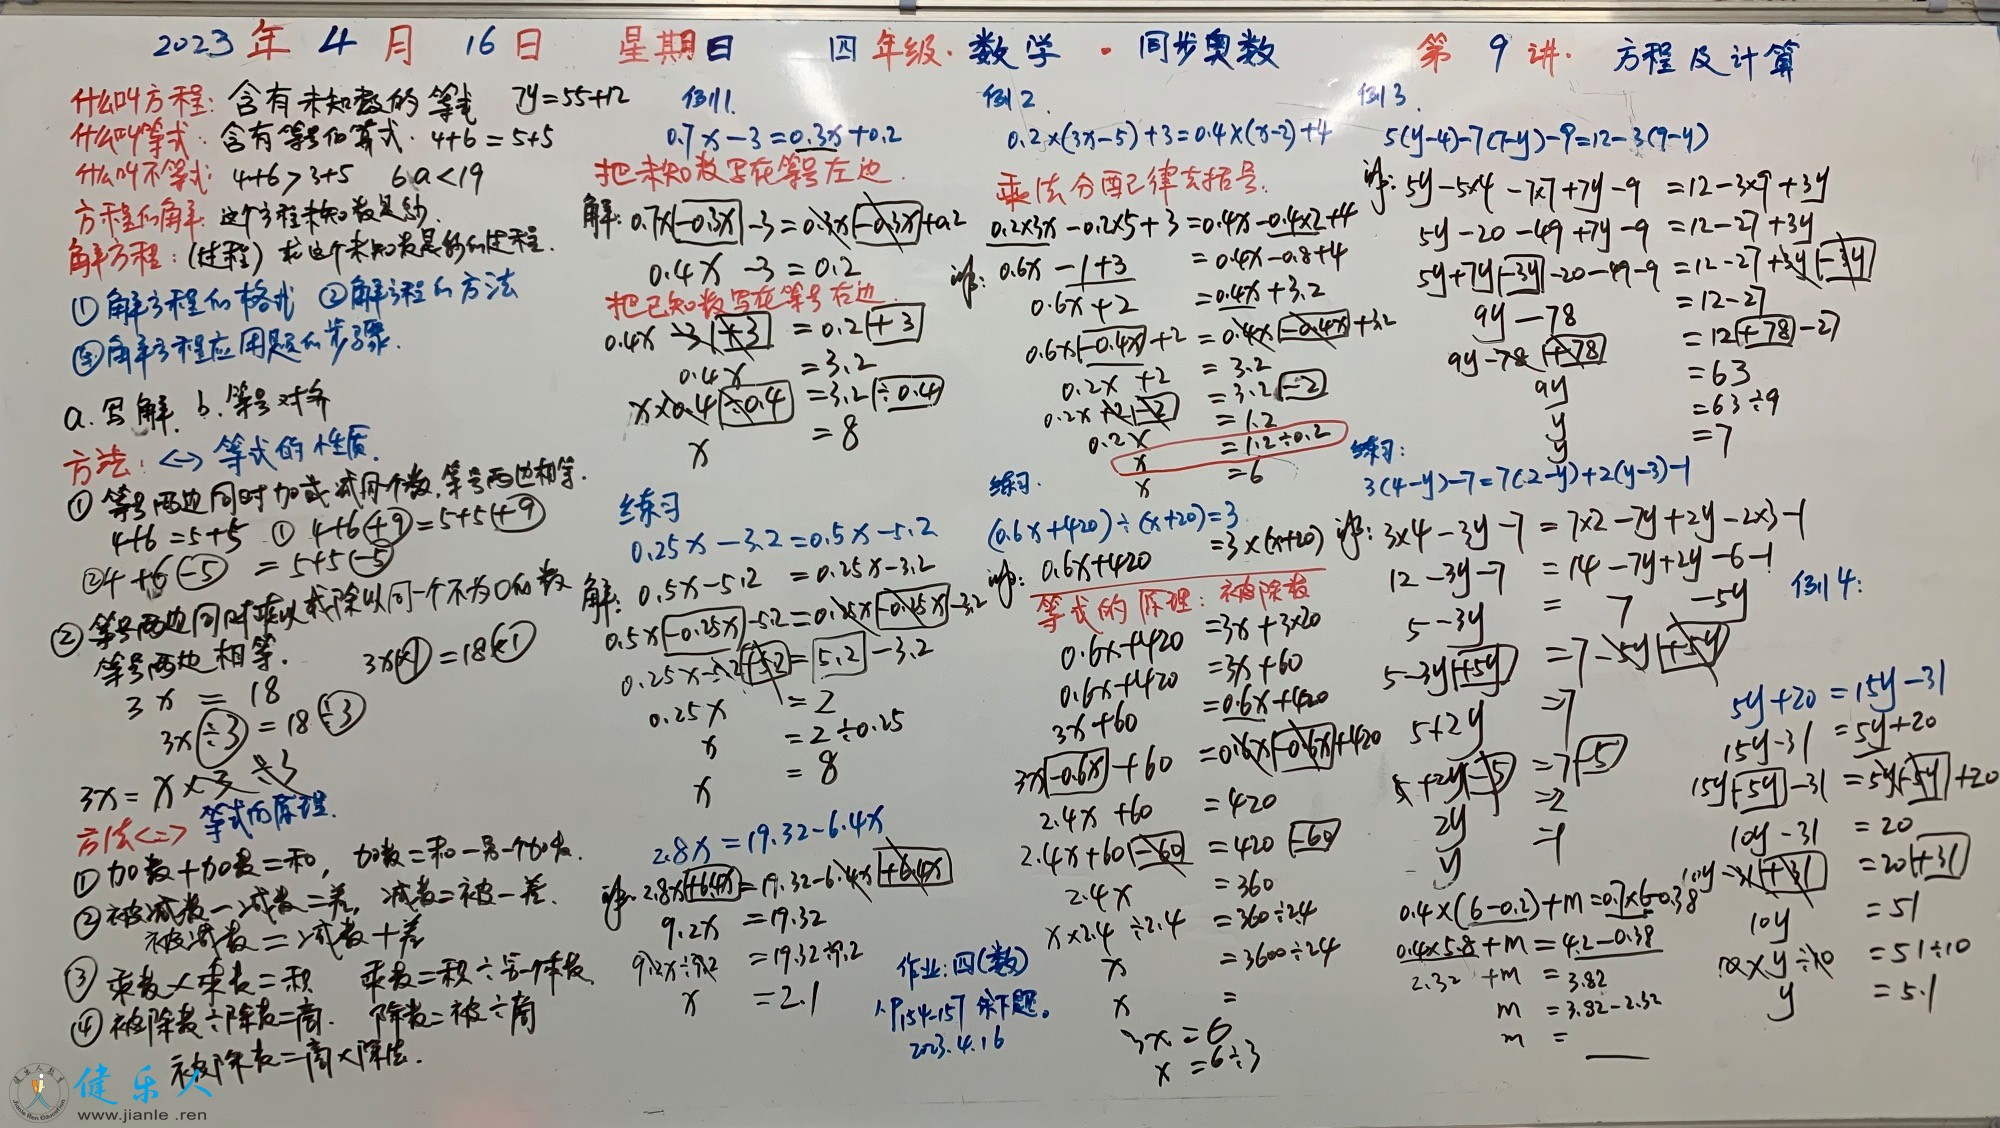 2023年4月16日 星期日 四年级·数学·同步奥数 第9讲·方程及计算
什么叫方程:含有未知数的等式 7y=55+12
什么叫等式:含有等号的算式. 4+6=5+5
什么叫不等式: 4+6>3+5 6a<19
方程的解: 这个方程未知数是幼.
解方程:(过程) 求这个未知数是多少的过程.
①解方程的格式 ②解方程的方法
③解方程应用题的步骤.
a.写解. b.等号对齐
方法:<一> 等式的性质.
①等号两边同时加或减同个数,等号两边相等.
4+6=5+5 ① 4+6+9=5+5+9
②4+6-5 =5+5-5
②等号两边同时乘以或除以同一个不为0的数
等号两边相等. 3x×1=18×1
3x = 18
3x÷3=18÷3
3x=x×3÷3
方法<二> 等式的原理.
①加数+加数=和, 加数=和-另一个加数.
②被减数-减数=差, 减数=被-差.
被减数=减数+差
③乘数×乘数=积 乘数=积÷另一个乘数
④被除数÷除数=商. 除数=被÷商
被除数=商×除法.
例1.
0.7x-3=0.3x+0.2
把未知数写在等号左边.
解:0.7x-0.3x-3=0.3x-0.3x+0.2
0.4x-3=0.2
把已知数写在等号右边.
0.4x-3+3 =0.2+3
0.4x =3.2
x×0.4÷0.4 =3.2÷0.4
x =8
练习
0.25x-3.2=0.5x-5.2
解: 0.5x-5.2 =0.25x-3.2
0.5x-0.25x-5.2=0.25x-0.25x-3.2
0.25x-5.2+5.2=5.2-3.2
0.25x =2
x =2÷0.25
x =8
2.8x=19.32-6.4x
解:2.8x+6.4x=19.32-6.4x+6.4x
9.2x =19.32
9.2x÷9.2 =19.32÷9.2
x =2.1
作业:四(数)
P154-157余下题。
2023.4.16
例2.
0.2×(3x-5)+3=0.4×(x-2)+4
乘法分配律去括号.
0.2×3x-0.2×5+3=0.4x-0.4×2+4
解: 0.6x-1+3 =0.4x-0.8+4
0.6x+2 =0.4x+3.2
0.6x-0.4x+2=0.4x-0.4x+3.2
0.2x+2 =3.2
0.2x+2-2 =3.2-2
0.2x =1.2
x =1.2÷0.2
x =6
练习.
(0.6x+420)÷(x+20)=3
解: 0.6x+420 =3×(x+20)
等式的原理:被除数
0.6x+420 =3x+3×20
0.6x+420 =3x+60
3x+60 =0.6x+420
3x-0.6x+60 =0.6x-0.6x+420
2.4x+60 =420
2.4x+60-60 =420-60
2.4x =360
x×2.4÷2.4 =360÷2.4
x =3600÷24
x =
3x=6
x=6÷3
例3
5(y-4)-7(7-y)-9=12-3(9-y)
解:5y-5×4-7×7+7y-9 =12-3×9+3y
5y-20-49+7y-9 =12-27+3y
5y+7y-3y-20-49-9 =12-27+3y-3y
9y-78 =12-27
9y-78+78 =12+78-27
9y =63
y =63÷9
y =7
练习:
3(4-y)-7=7(2-y)+2(y-3)-1
解:3×4-3y-7 =7×2-7y+2y-2×3-1
12-3y-7 =14-7y+2y-6-1
5-3y = 7 -5y
5-3y+5y =7-5y+5y
5+2y =7
5+2y-5 =7-5
2y =2
y =1
0.4×(6-0.2)+m=0.7×6-0.38
0.4×5.8+m=4.2-0.38
2.32 +m =3.82
m =3.82-2.32
m =
例4:
5y+20=15y-31
15y-31 =5y+20
15y-5y-31 =5y-5y+20
10y-31 =20
10y-31+31 =20+31
10y =51
10×y÷10 =51÷10
y =5.1
健乐人
www.jianle .ren